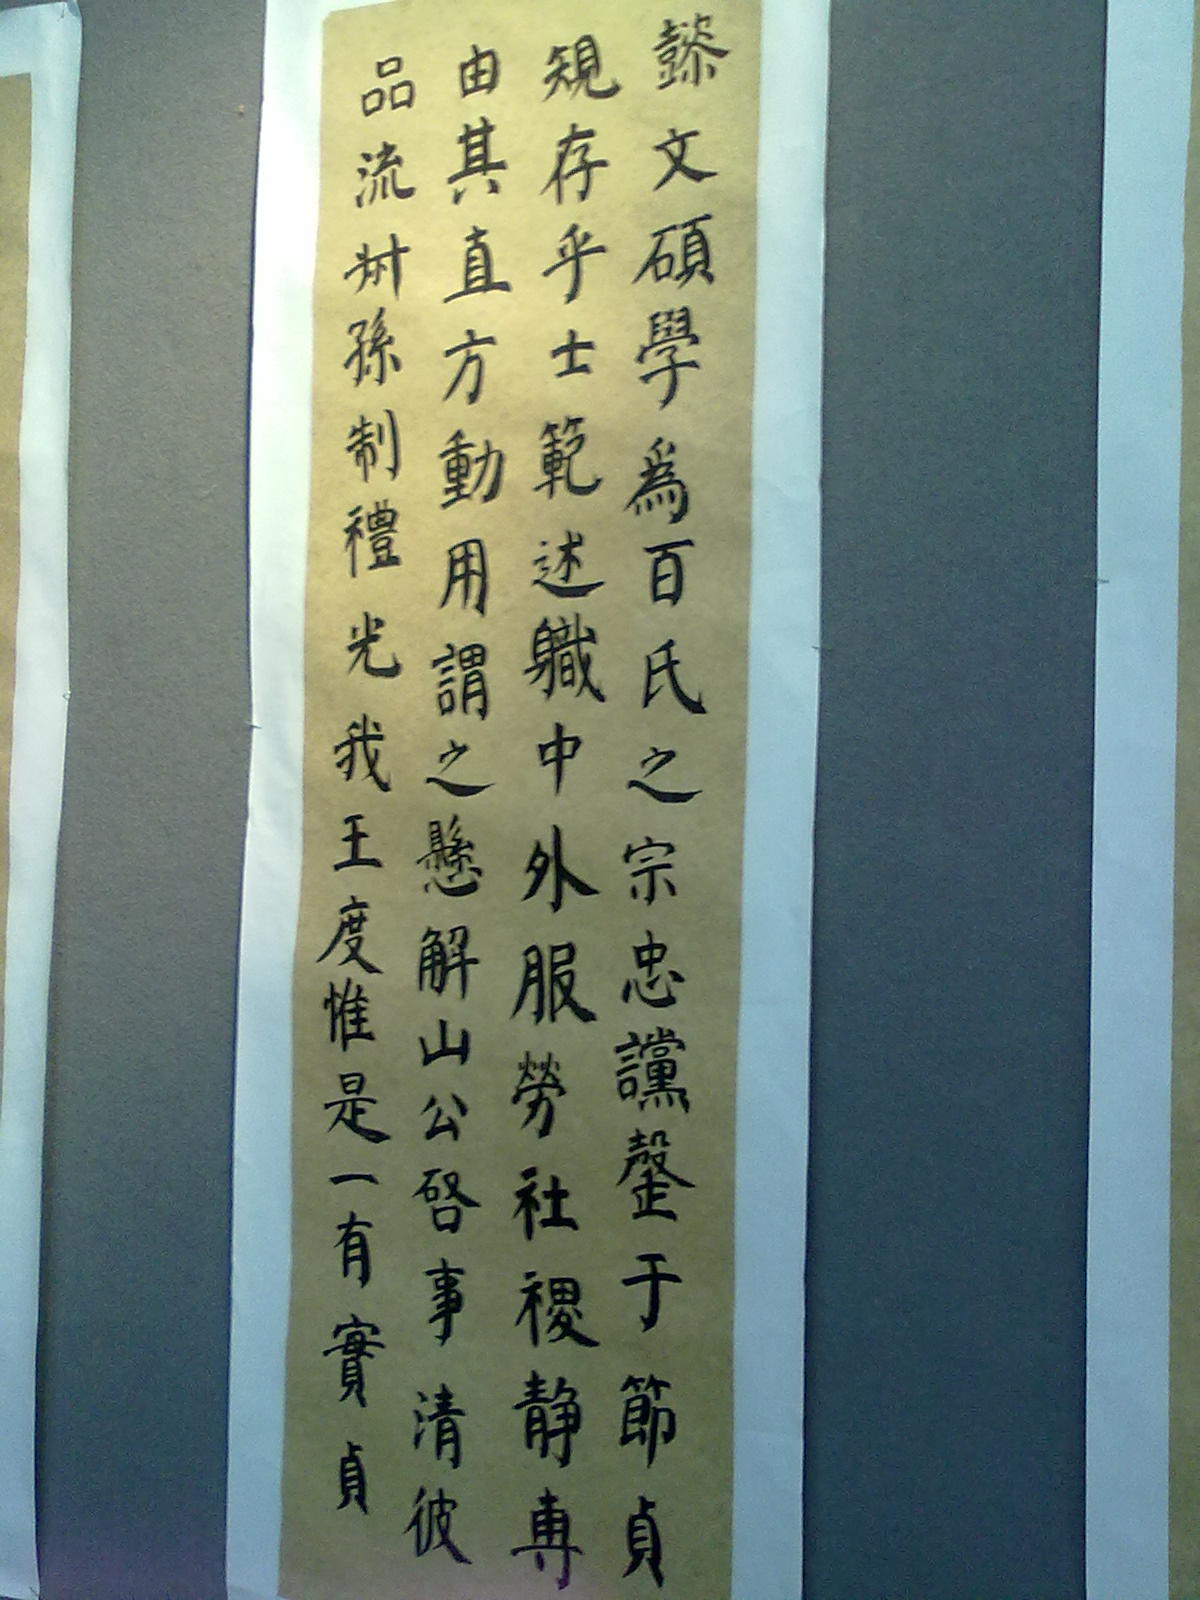 懿文碩學為百氏之宗忠讜罄于節貞
規存乎士範述職中外服勞社稷静專
由其直方動用謂之懸解山公啓事清彼
品流叔孫制禮光我王度惟是一有實貞